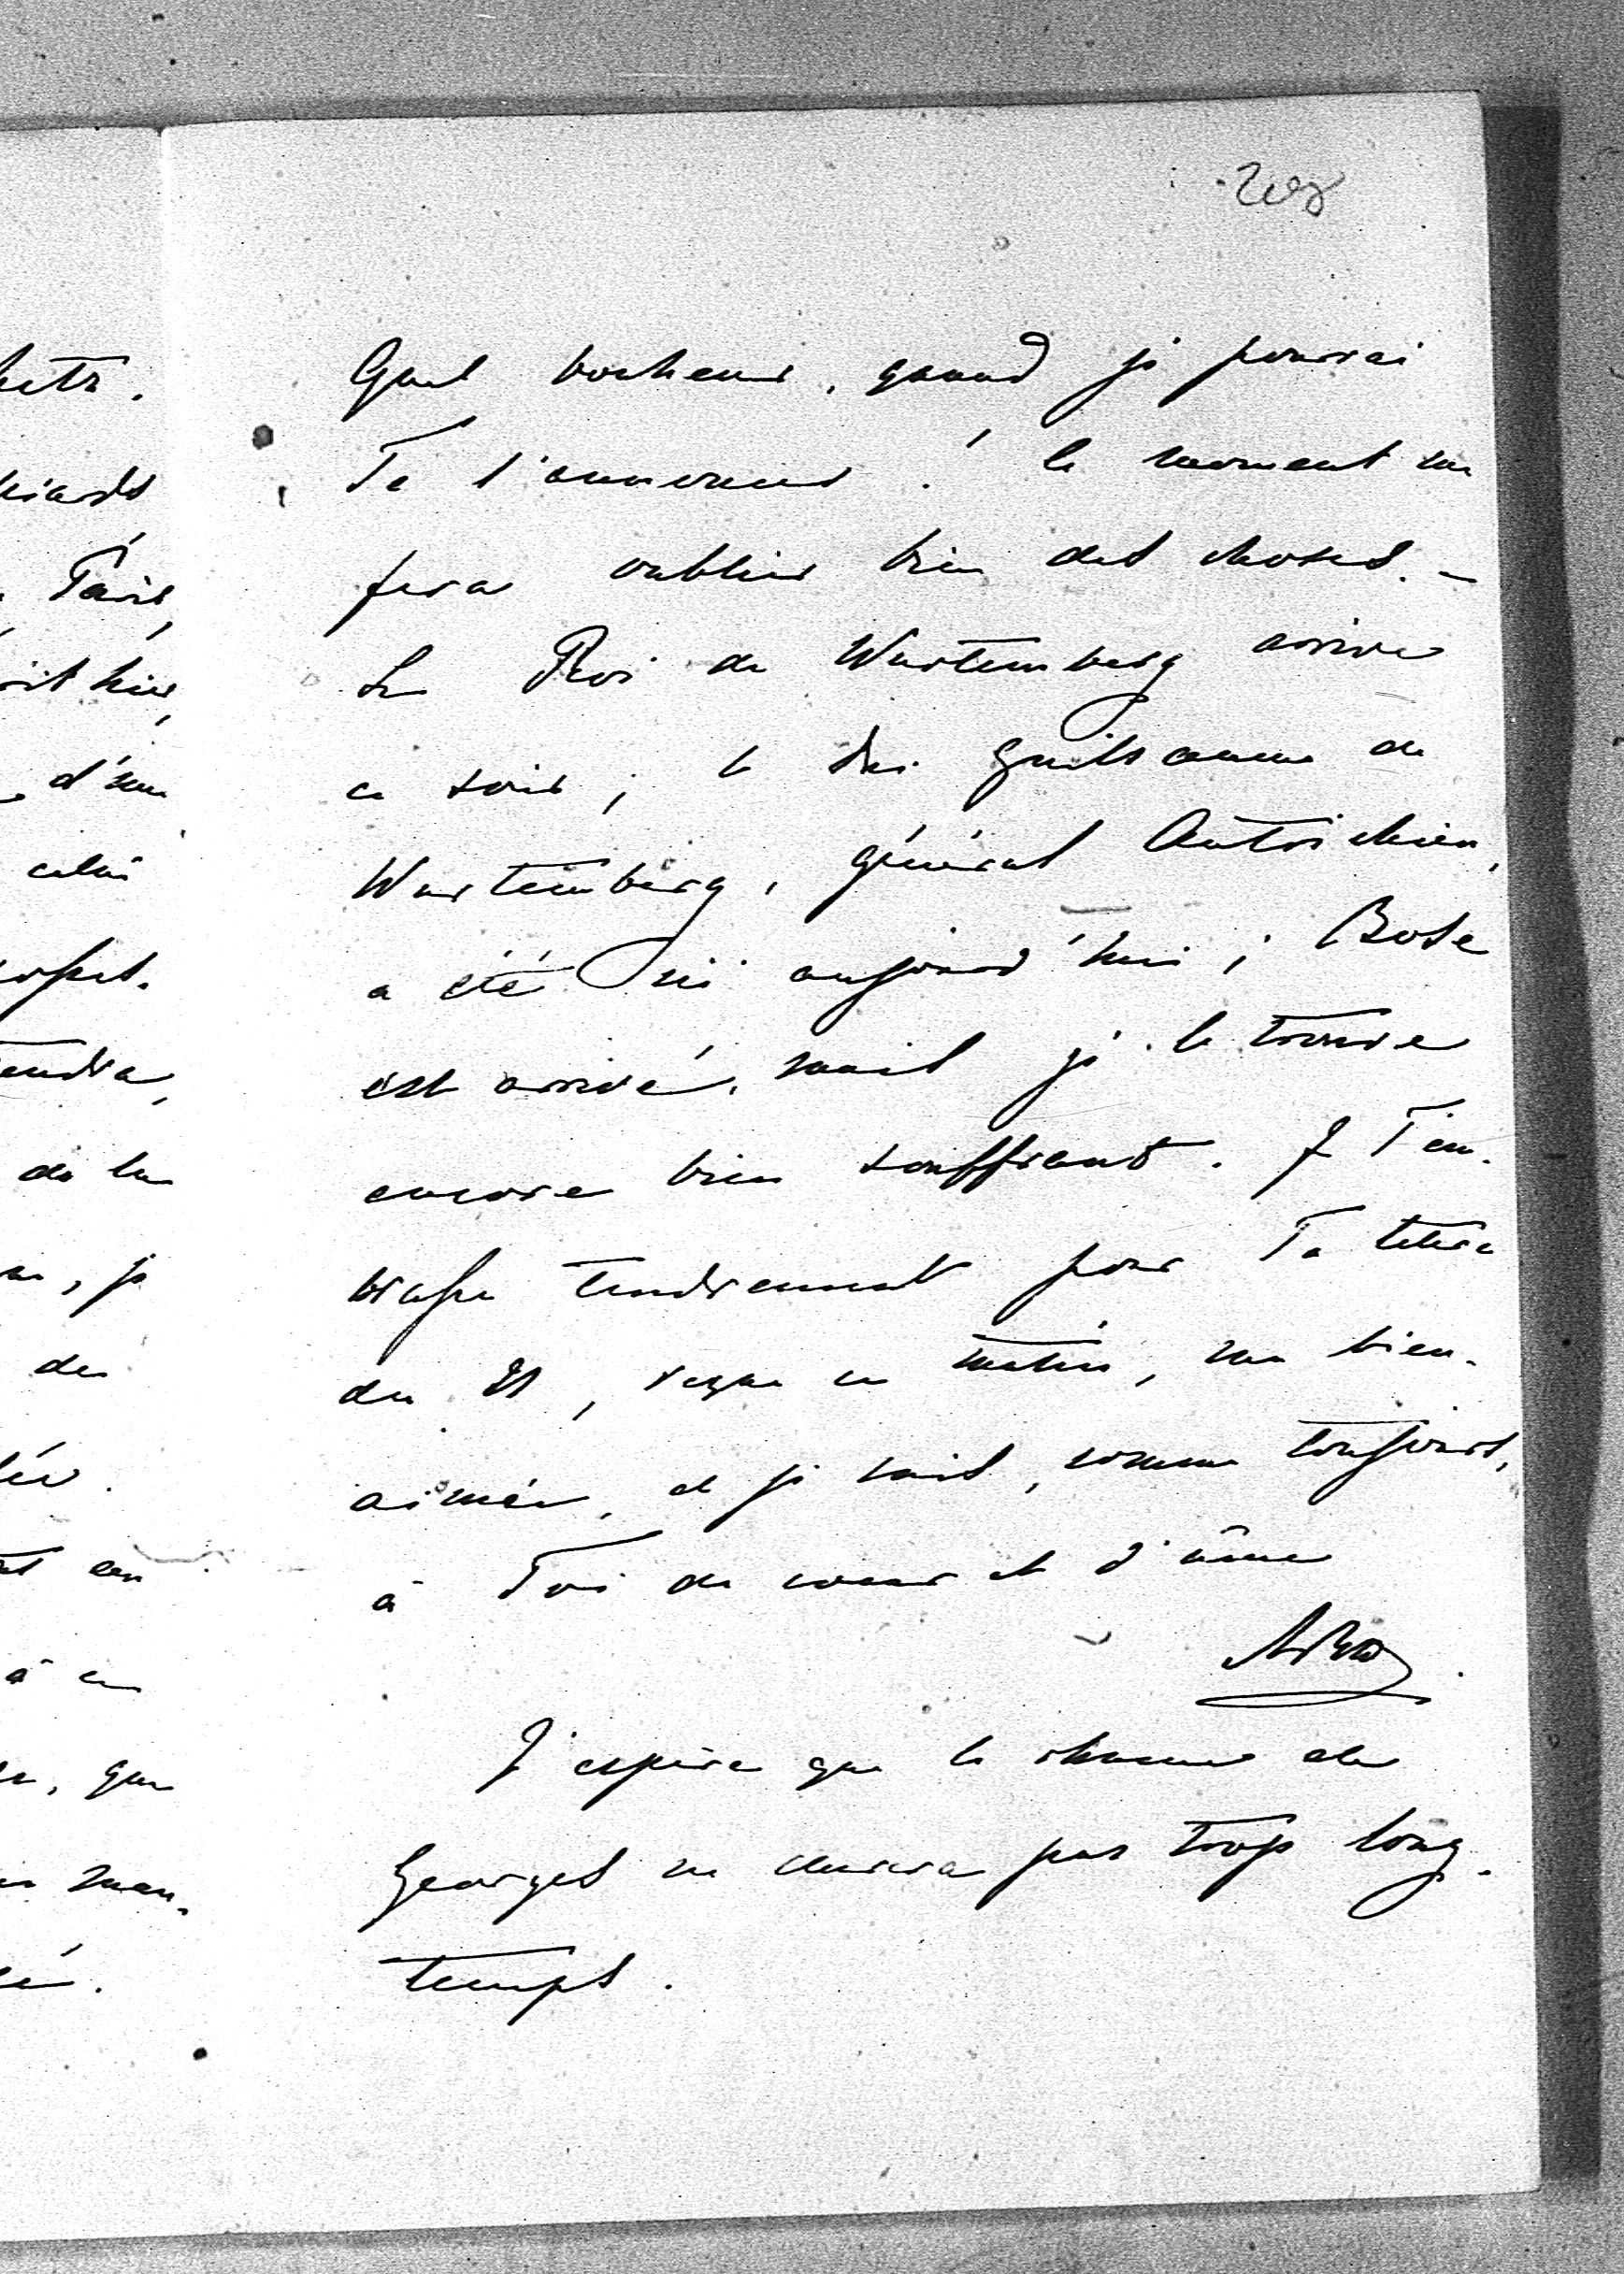 208
Quel bonheur, quand je pourrai
Te l'annoncer! Ce moment me
fera oublier bien des choses. –
Le Roi de Wurtemberg arrive
ce soir; le Duc Guillaume de
Wurtemberg, général Autrichien,
a été ici aujourd'hui; Bose
est arrivé, mais je le trouve
encore bien souffrant. Je T'em-
brasse tendrement pour Ta lettre
du 21, reçue ce matin, ma bien-
aimée, et je suis, comme toujours,
à Toi de coeur et d'âme
J'espère que le rhume de
Georges ne durera pas trop long-
temps.